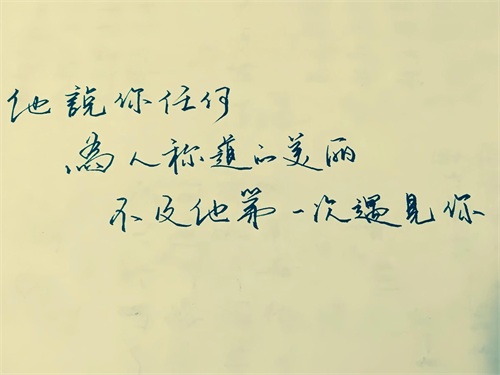 他說你任何
為人称道的美丽
不及他第一次遇見你